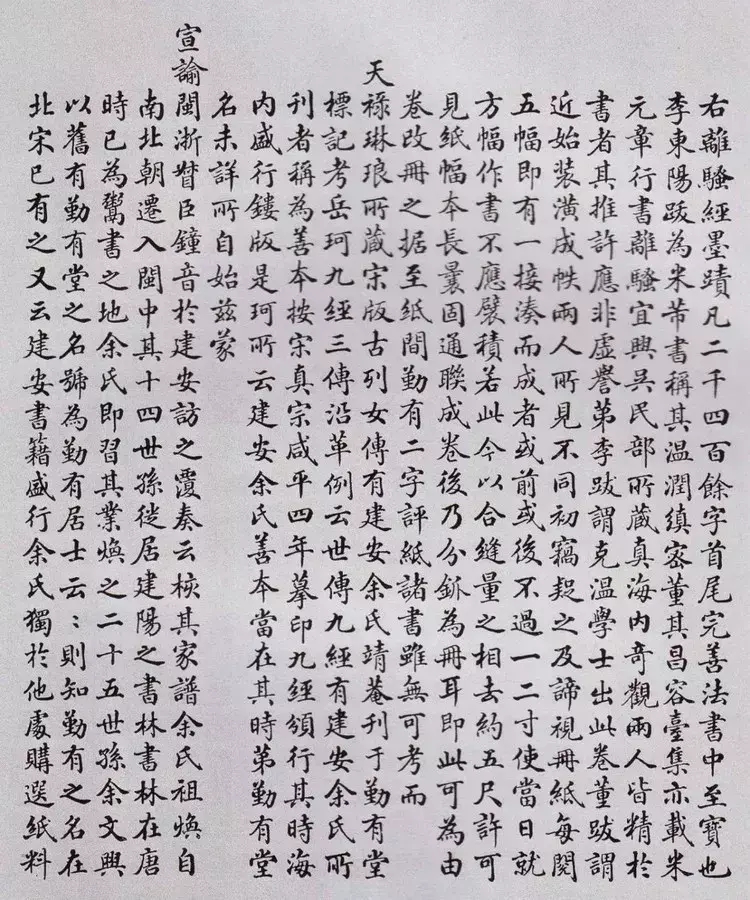 右離騷經墨蹟凡二千四百餘字首尾完善法書中至寶也
李東陽跋為米芾書稱其温潤縝密董其昌容臺集亦載米
元章行書離騷宜興吳民部所藏真海内奇觀兩人皆精於
書者其推許應非虛譽第李跋謂克温學士出此卷董跋謂
近始装潢成帙兩人所見不同初竊疑之及諦視冊紙每閲
五幅即有一接湊而成者或前或後不過一二寸使當日就
方幅作書不應襞積若此今以合縫量之相去約五尺許可
見紙幅本長曩固通聯成卷後乃分釽為冊耳即此可為由
卷改冊之据至紙間勤有二字評紙諸書雖無可考而
天祿琳琅所藏宋版古列女傳有建安余氏靖菴刊于勤有堂
標記考岳珂九經三傳沿革例云世傳九經有建安余氏所
刊者稱為善本按宋真宗咸平四年摹印九經頒行其時海
内盛行鏤版是珂所云建安余氏善本當在其時第勤有堂
名未詳所自始兹蒙
宣諭閩浙督臣鐘音於建安訪之覆奏云核其家譜余氏祖煥自
南北朝遷入閩中其十四世孫徙居建陽之書林書林在唐
時已為鬻書之地余氏即習其業煥之二十五世孫余文興
以舊有勤有堂之名號為勤有居士云：則知勤有之名在
北宋已有之又云建安書籍盛行余氏獨於他處購選紙料